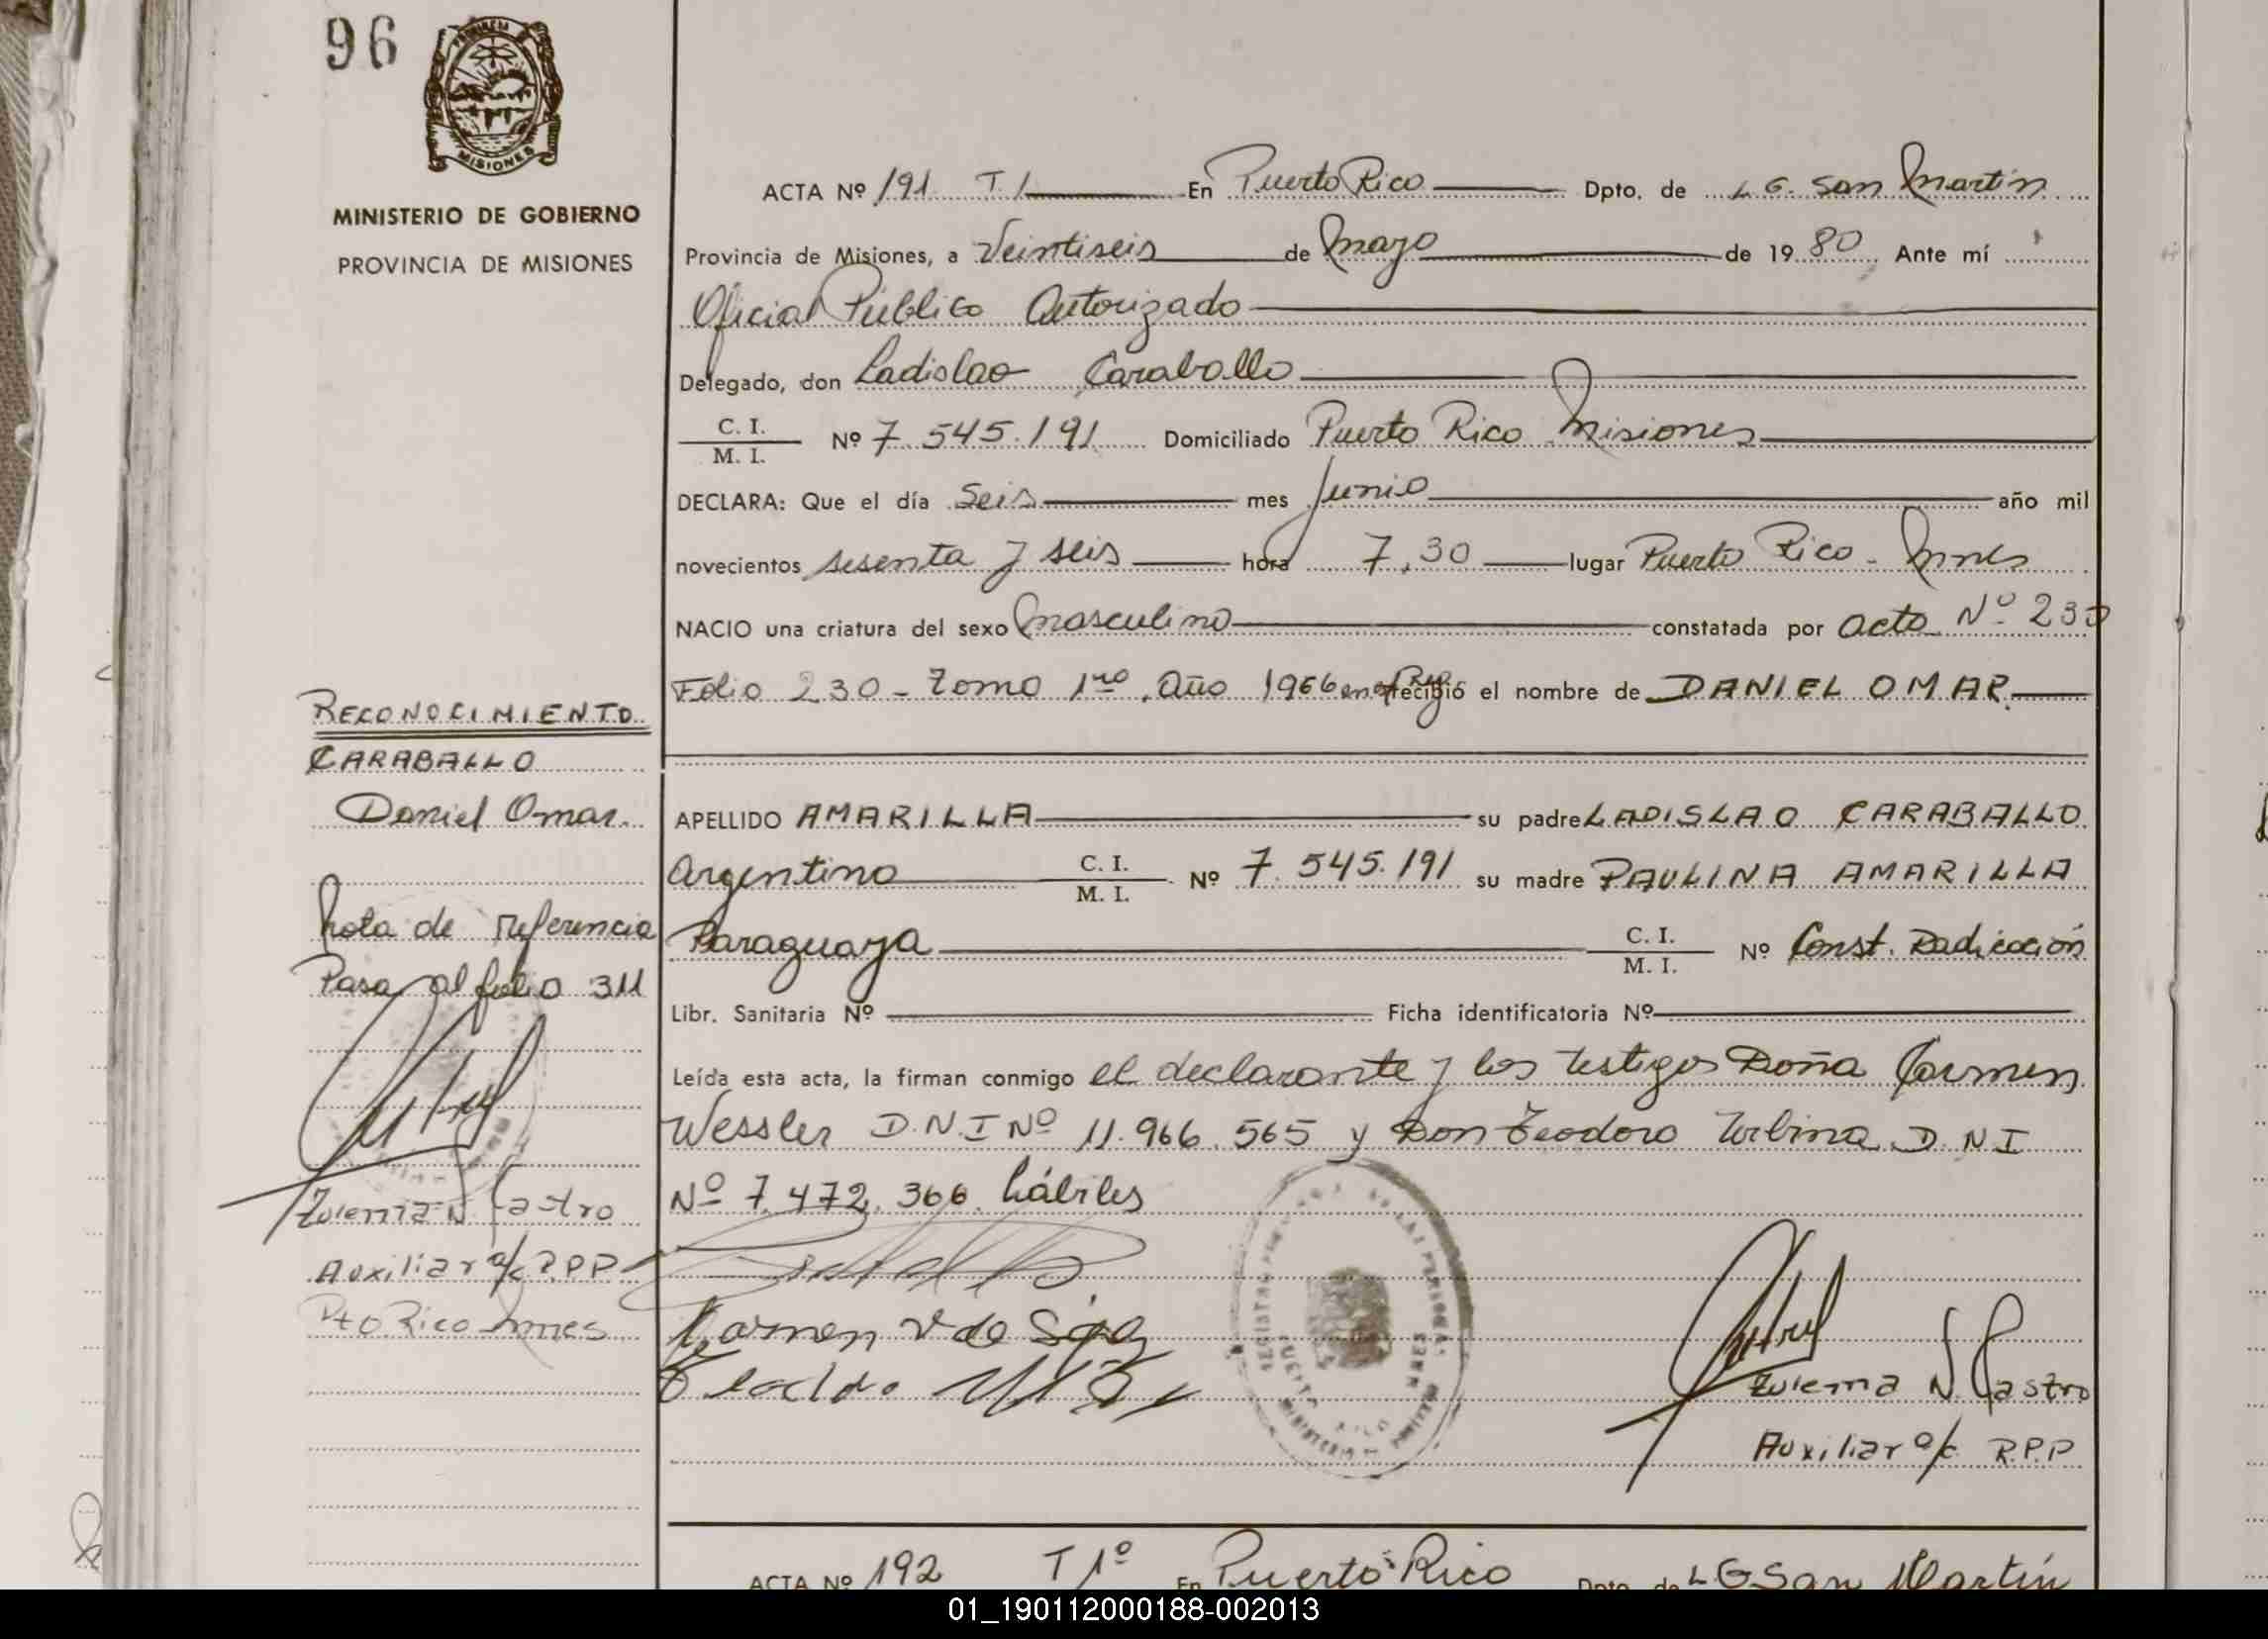 96
PROVINCIA
MISIONES
MINISTERIO DE GOBIERNO
PROVINCIA DE MISIONES
ACTA Nº 191 T. 1 En Puerto Rico Dpto. de L G. San Martín
Provincia de Misiones, a Veintiseis de mayo de 1980 Ante mí
Oficial Público Autorizado
Delegado, don Ladislao Caraballo
C. I.
M. I. Nº 7.545.191 Domiciliado Puerto Rico Misiones
DECLARA: Que el día Seis mes Junio año mil
novecientos sesenta y seis hora 7,30 lugar Puerto Rico - Mnes
NACIO una criatura del sexo masculino constatada por acta Nº 230
Folio 230 - Tomo 1ro. Año 1966 recibió el nombre de DANIEL OMAR
RECONOCIMIENTO
CARABALLO
Daniel Omar.
Nota de referencia
Pasa al folio 311
Zulema N Castro
Auxiliar a/c R.P.P
Pto Rico Mnes
APELLIDO AMARILLA su padre LADISLAO CARABALLO
Argentino C. I.
M. I. Nº 7.545.191 su madre PAULINA AMARILLA
Paraguaya C. I.
M. I. Nº Const. Radicación
Libr. Sanitaria Nº Ficha identificatoria Nº
Leída esta acta, la firman conmigo el declarante y los testigos Doña Carmen
Wessler D.N.I Nº 11.966.565 y Don Teodoro Urbina D.N.I
Nº 7.472.366 hábiles
Carmen
Zulema N. Castro
Auxiliar a/c R.P.P
ACTA Nº 192 T 1º En Puerto Rico Dpto. de L G San Martín
01_190112000188-002013